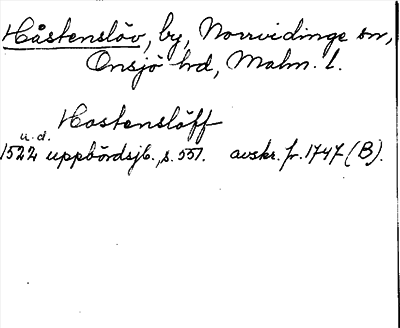 Håstenslöv, by, Norrvidinge sn,
Onsjö hd, Malm. l.
Hostenslöff
u.d.
1522 uppbördsjb., s. 551. avskr. fr. 1747 (B).